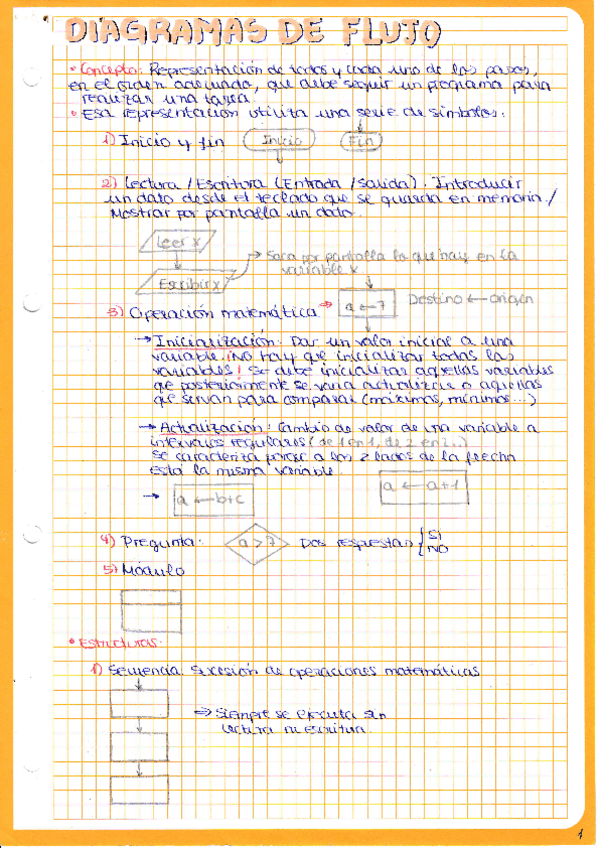 DIAGRAMAS DE FLUJO
• Concepto: Representación de todos y cada uno de los pasos,
en el orden adecuado, que debe seguir un programa para
realizar una tarea.
• Esa representación utiliza una serie de símbolos:
1) Inicio y fin Inicio Fin
2) Lectura / Escritura (Entrada / Salida). Introducir
un dato desde el teclado que se guarda en memoria /
Mostrar por pantalla un dato.
Leer x
→ Saca por pantalla lo que hay en la
variable x
Escribir x
3) Operación matemática → a ← 7 Destino ← origen
→ Inicialización: Dar un valor inicial a una
variable. ¡No hay que inicializar todas las
variables! Se debe inicializar aquellas variables
que posteriormente se vaya a actualizar o aquellas
que servan para comparar (máximos, mínimos...)
→ Actualización: Cambio de valor de una variable a
intervalos regulares (de 1 en 1, de 2 en 2..)
Se caracteriza porque a los 2 lados de la flecha
está la misma variable
→ a ← b+c a ← a+1
4) Pregunta: a > 7 Dos respuestas { SI
NO
5) Módulo
• Estructuras:
1) Secuencia. Sucesión de operaciones matemáticas
⇒ Siempre se ejecuta sin
lectura ni escritura
1